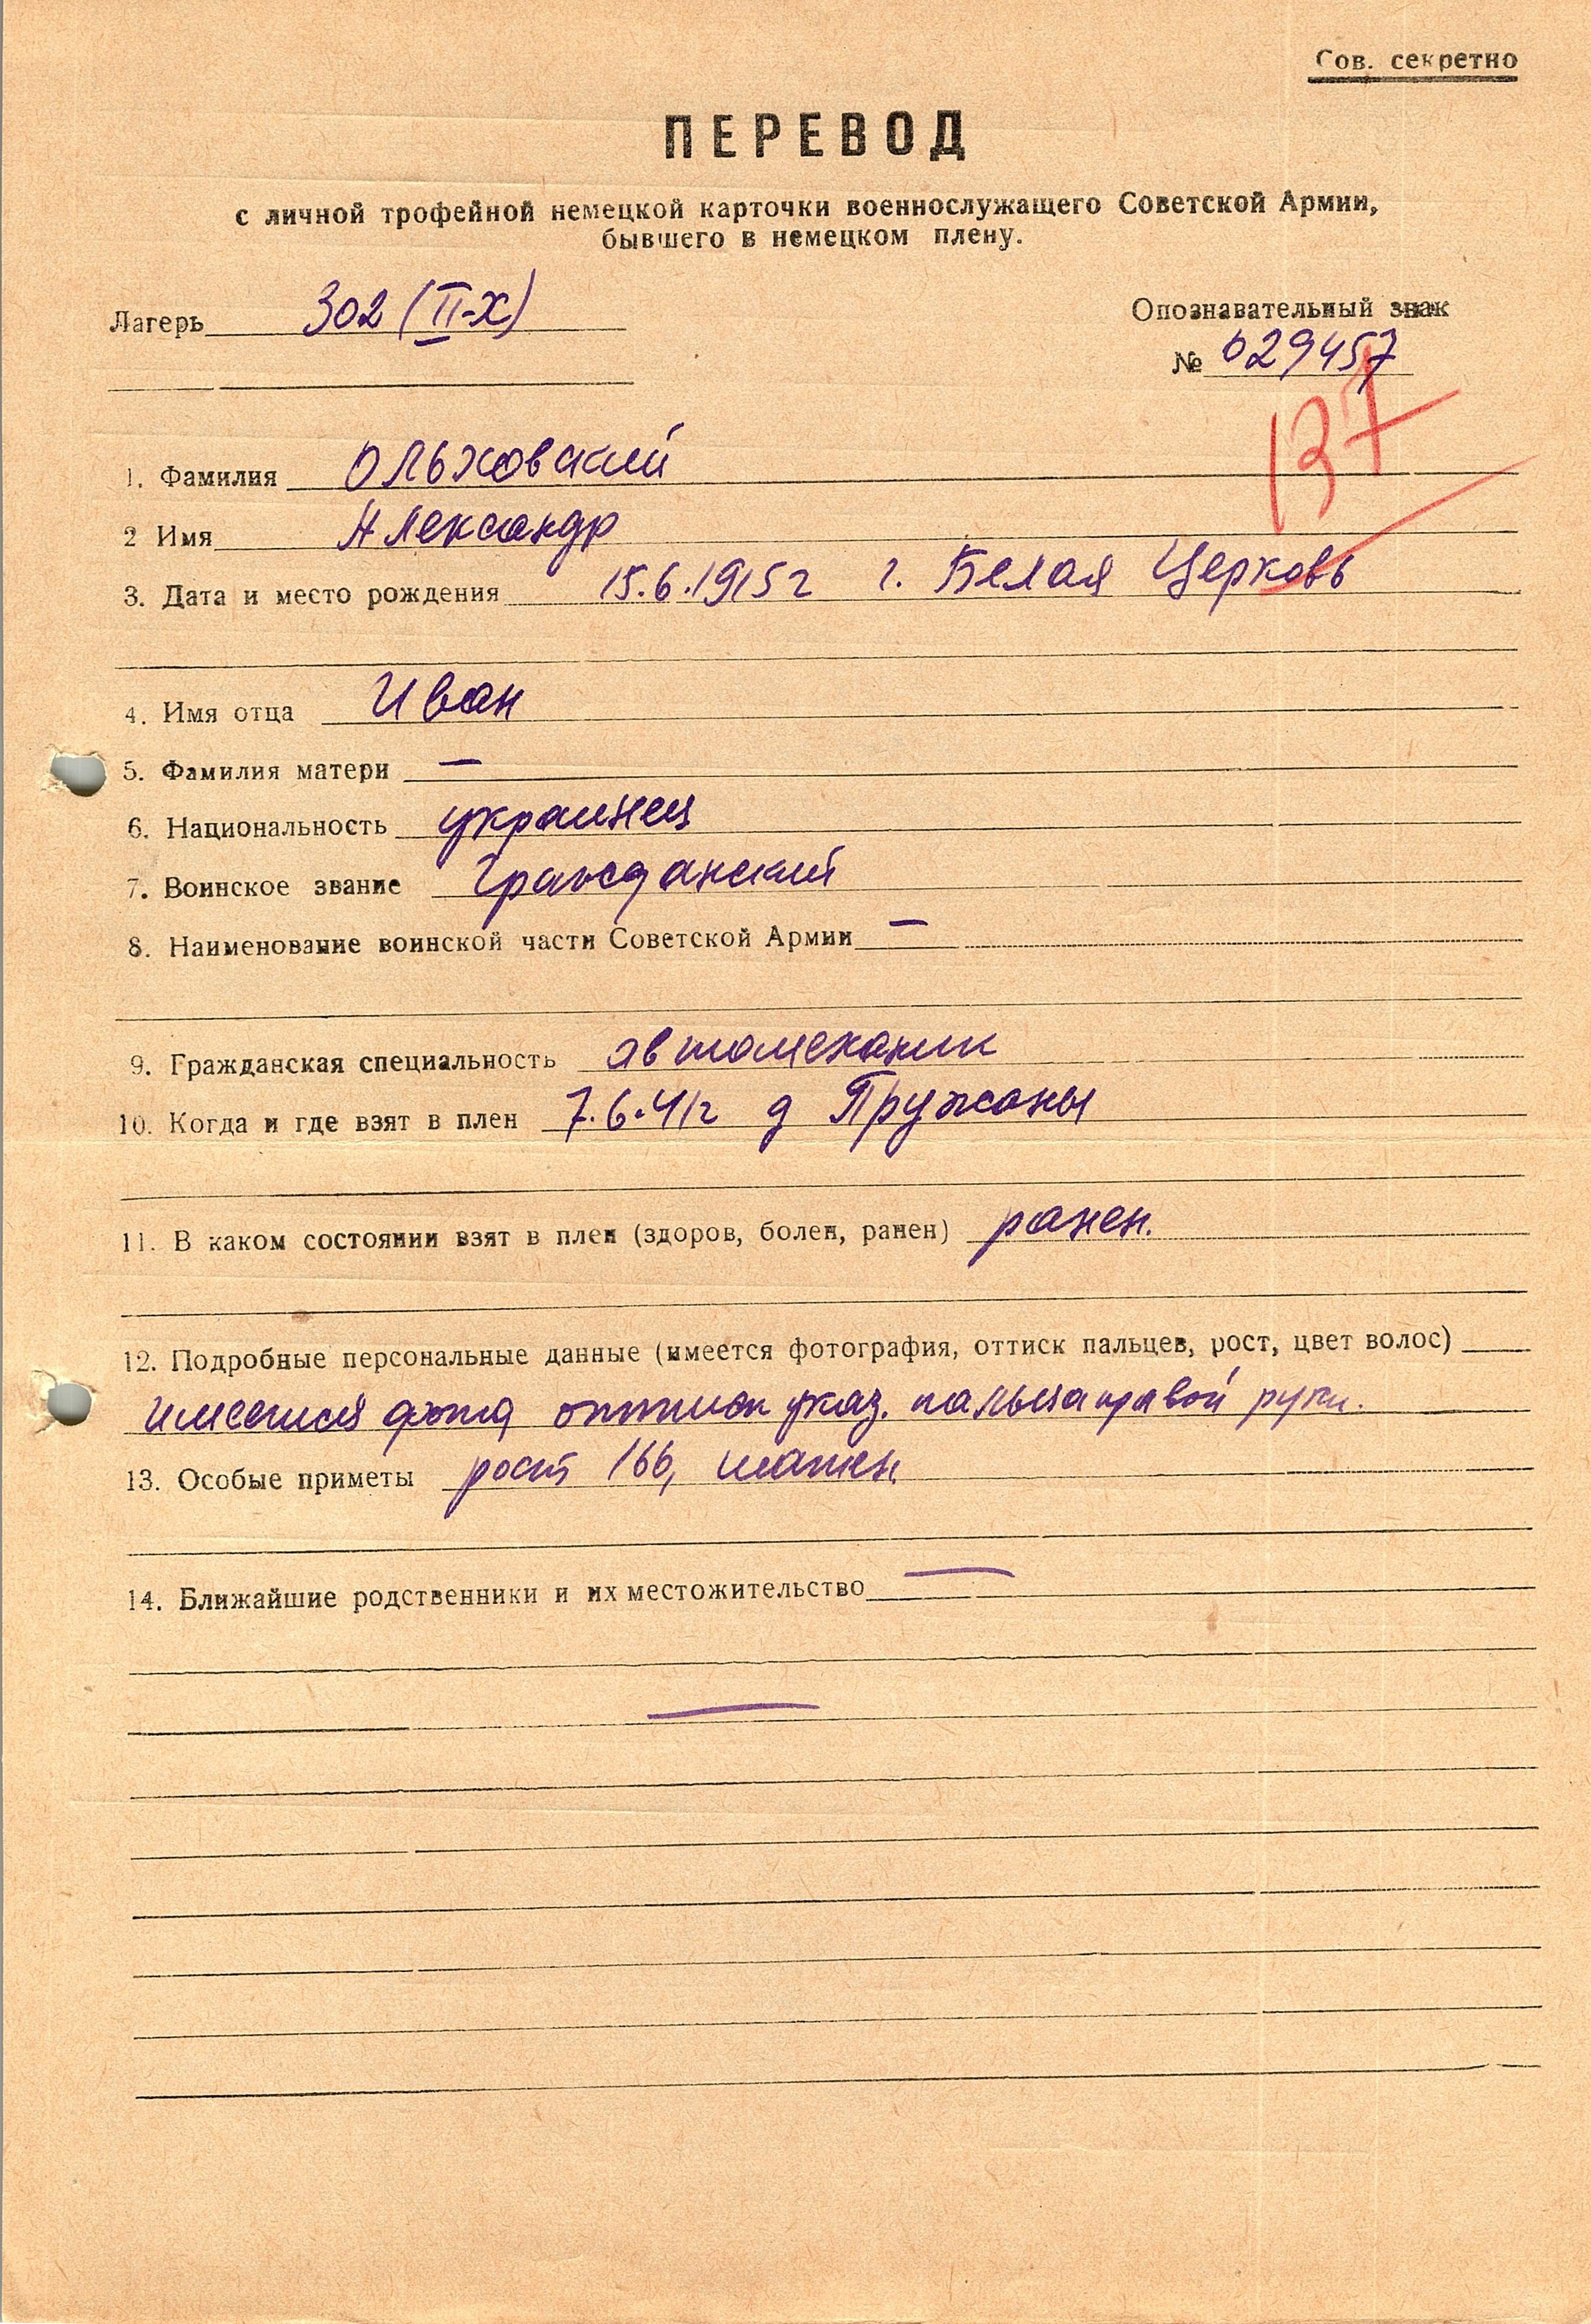 Сов. секретно
ПЕРЕВОД
с личной трофейной немецкой карточки военнослужащего Советской Армии,
бывшего в немецком плену.
Лагерь 302 (II-X)
Опознавательный знак
№ 029457
137
1. Фамилия Ольховский
2 Имя Александр
3. Дата и место рождения 15.6.1915г г. Белая Церковь
4. Имя отца Иван
5. Фамилия матери —
6. Национальность украинец
7. Воинское звание Гражданский
8. Наименование воинской части Советской Армии —
9. Гражданская специальность автомеханик
10. Когда и где взят в плен 7.6.41г д Пружаны
11. В каком состоянии взят в плен (здоров, болен, ранен) ранен.
12. Подробные персональные данные (имеется фотография, оттиск пальцев, рост, цвет волос)
имеется фото, оттиск указ. пальца правой руки.
13. Особые приметы рост 166, шатен
14. Ближайшие родственники и их местожительство —
—